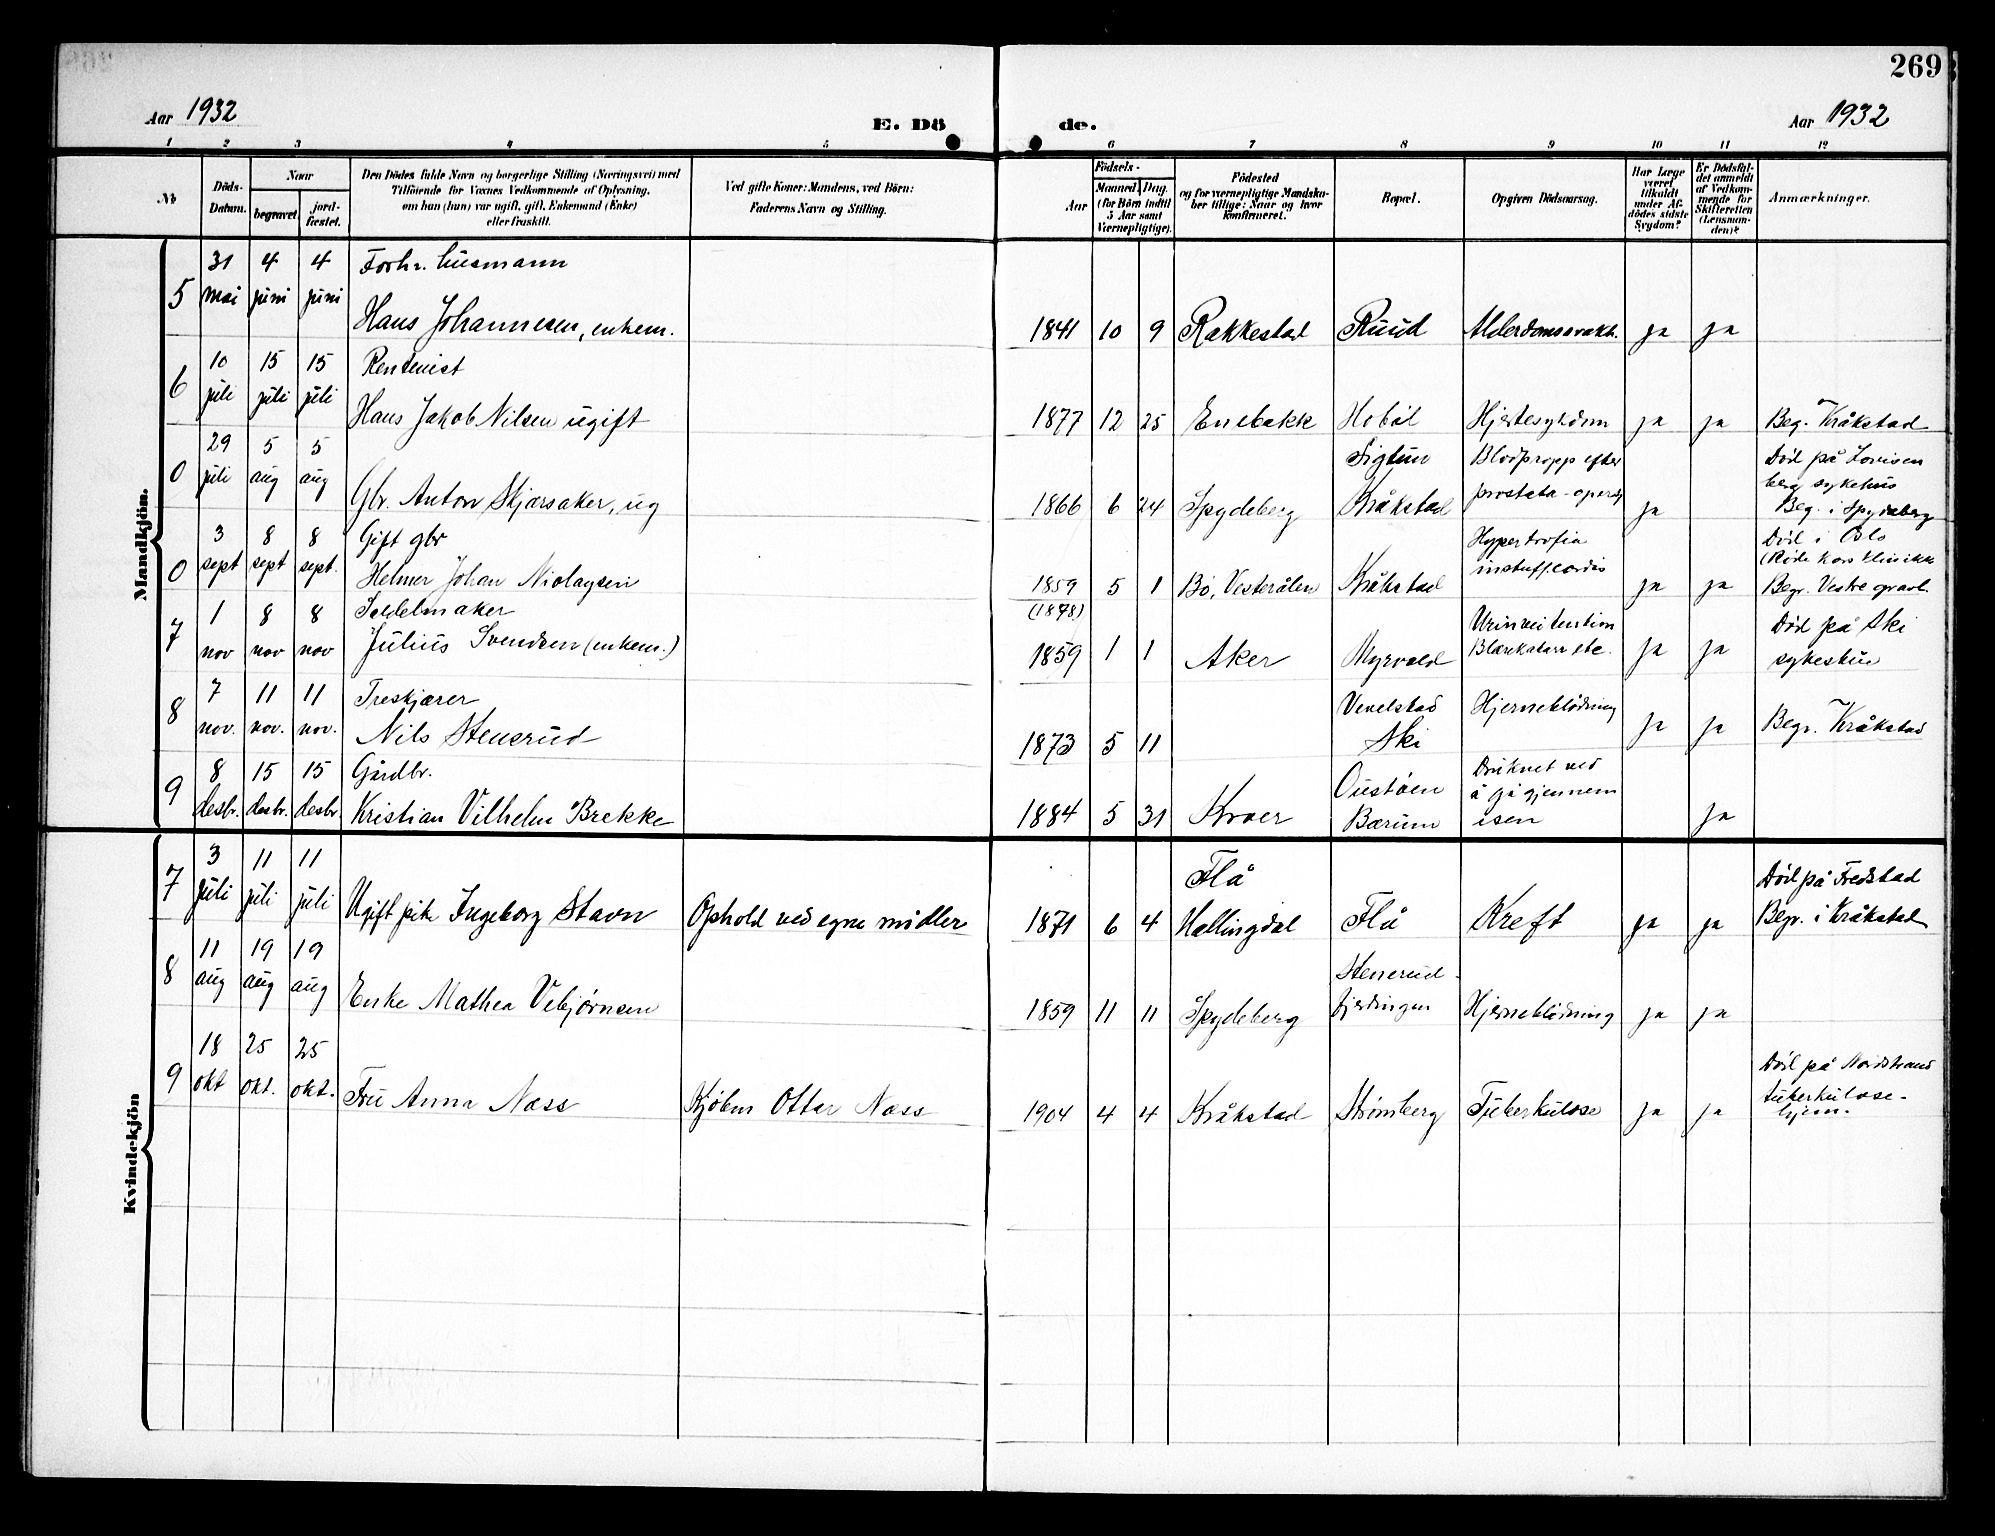 269
Aar 1932
E. Dö
de.
Aar 1932
1 2 3 4 5 6 7 8 9 10 11 12
№
Döds-
Datum.
Naar
begravet.
jord-
fæstet.
Den Dödes fulde Navn og borgerlige Stilling (Næringsvei) med
Tilföiende for Voxnes Vedkommende af Oplysning,
om han (hun) var ugift, gift, Enkemand (Enke)
eller fraskilt.
Ved gifte Koner: Mandens, ved Börn:
Faderens Navn og Stilling.
Födsels-
Aar
Maaned. Dag.
(for Börn indtil
5 Aar samt
Værnepligtige).
Födested
og for værnepligtige Mandska-
ber tillige: Naar og hvor
konfirmeret.
Bopæl.
Opgiven Dödsaarsag.
Har Læge
været
tilkaldt
under Af-
dödes sidste
Sygdom?
Er Dödsfal-
det anmeldt
af Vedkom-
mende for
Skifteretten
(Lensman-
den)?
Anmærkninger.
Mandkjön.
5 31 mai 4 juni 4 juni
Forhv. husmann
Hans Johannesen, enkem.
1841 10 9 Rakkestad Ruud Alderdomssvakh. ja ja
6 10 juli 15 juli 15 juli
Rentenist
Hans Jakob Nilsen ugift
1877 12 25 Enebakk Hobøl Hjertesykdom ja ja Beg. Kråkstad
0 29 juli 5 aug 5 aug
Gbr. Anton Skjærsaker, ug
1866 6 24 Spydeberg
Sigtun
Kråkstad
Blodpropp efter
prostata-operasj
ja
Død på Lovisen
berg sykehus
Beg. i Spydeberg
0 3 sept 8 sept 8 sept.
Gift gbr
Helmer Johan Niolaysen
1859 5 1 Bø, Vesterålen Kråkstad
Hypertrofia
insuff. cordis
ja ja
Død i Oslo
(Røde Kors Klinikk
Begr. Vestre gravl.
7 1 nov 8 nov 8 nov
Saldelmaker
Julius Svendsen (enkem.)
(1848)
1859 1 1 Aker Myrvold
Urinretention
Blærekatarr etc.
ja ja
Død på Ski
sykestue
8 7 nov. 11 nov. 11 nov.
Treskjærer
Nils Stenerud
1873 5 11
Vevelstad
Ski
Hjerneblødning
ja ja Begr. Kråkstad
9 8 desbr. 15 desbr. 15 desbr.
Gårdbr.
Kristian Vilhelm Brekke
1884 5 31 Kroer
Oustøen
Bærum
Druknet ved
å gå gjennem
isen
ja
Kvindekjön
7 3 juli 11 juli 11 juli
Ugift pike Ingeborg Stavn Ophold ved egne midler
1871 6 4
Flå
Hallingdal
Flå Kreft ja ja
Død på Fredstad
Begr. i Kråkstad
8 11 aug 19 aug 19 aug
Enke Mathea Vebjørnsen
1859 11 11 Spydeberg
Stenerud-
fjerdingen
Hjerneblødning ja ja
9 18 okt 25 okt. 25 okt.
Fru Anna Næss Kjøbm Ottar Næss
1904 4 4 Kråkstad Strømberg Tuberkulose ja ja
Død på Nordstrand
tuberkulose-
hjem.